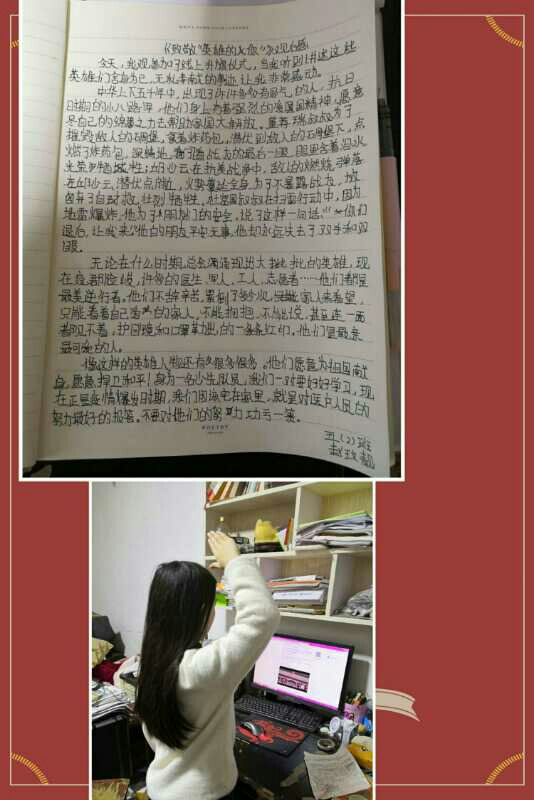 《致敬"英雄的你"》观后感
今天,我观参加了线上升旗仪式,当我听到讲述这些
英雄们舍身为己,无私奉献的事迹,让我非常感动。
中华上下五千年中,出现了许许多多有勇气的人,抗日
时期的小八路军,他们身上有着强烈的爱国精神,愿意
尽自己的绵薄之力去帮助家国大解放。董存瑞叔叔为了
摧毁敌人的碉堡,拿着炸药包,潜伏到敌人的碉堡下,点
燃了炸药包,
光荣牺牲;邱少云在抗美战争中,敌人的燃烧弹落
在邱少云潜伏点附近,火势蔓延全身,为了不暴露战友,放
弃了自救,壮烈牺牲。杜富国叔叔在扫雷行动中,因为
地雷爆炸,他为了朋友们的安全,说了这样一句话:"你们
退后,让我来"他的朋友平安无事,他却永远失去了双手和双
眼。
无论在什么时期,总会涌现出大批大批的英雄,现
在疫情阶段,许多的医生、军人、工人、志愿者……他们都是
最美逆行者。他们不怕辛苦,累倒了多少次,
只能看着自己的家人,不能拥抱,不能说,甚至连一面
都见不着,护目镜和口罩勒出的一条条红印,他们是最亲
最可爱的人。
像这样的英雄人物还有很多很多。他们愿意为祖国献
身,愿意捍卫和平!身为一名少先队员,我们一定要好好学习,现
在正是疫情爆发时期,我们因该宅在家里,就是对医护人员的
努力最好的报答。不要对他们的努力功亏一篑。
POETRY
五(2)班
赵玫